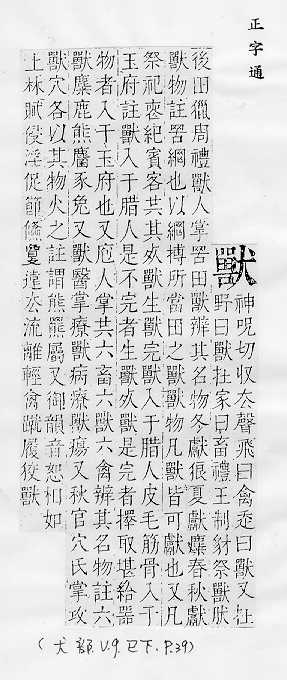 正字通
獸
神呪切收去聲飛曰禽走曰獸又在
野曰獸在家曰畜禮王制豺祭獸然
後田獵周禮獸人掌罟田獸辨其名物冬獻狼夏獻麋春秋獻
獸物註罟網也以網搏所當田之獸獸物凡獸皆可獻也又凡
祭祀喪紀賓客共其死獸生獸完獸入于腊人皮毛筋骨入于
玉府註獸入于腊人是不完者生獸死獸是完者擇取堪給器
物者入于玉府也又庖人掌共六畜六獸六禽辨其名物註六
獸麋鹿熊麕豕兔又獸醫掌療獸病療獸瘍又秋官穴氏掌攻
獸穴各以其物火之註謂熊羆屬又御韻音恕相如
上林賦侵淫促節儵敻遠去流離輕禽蹴履狡獸
(犬部 V.9. 巳下. P.39)